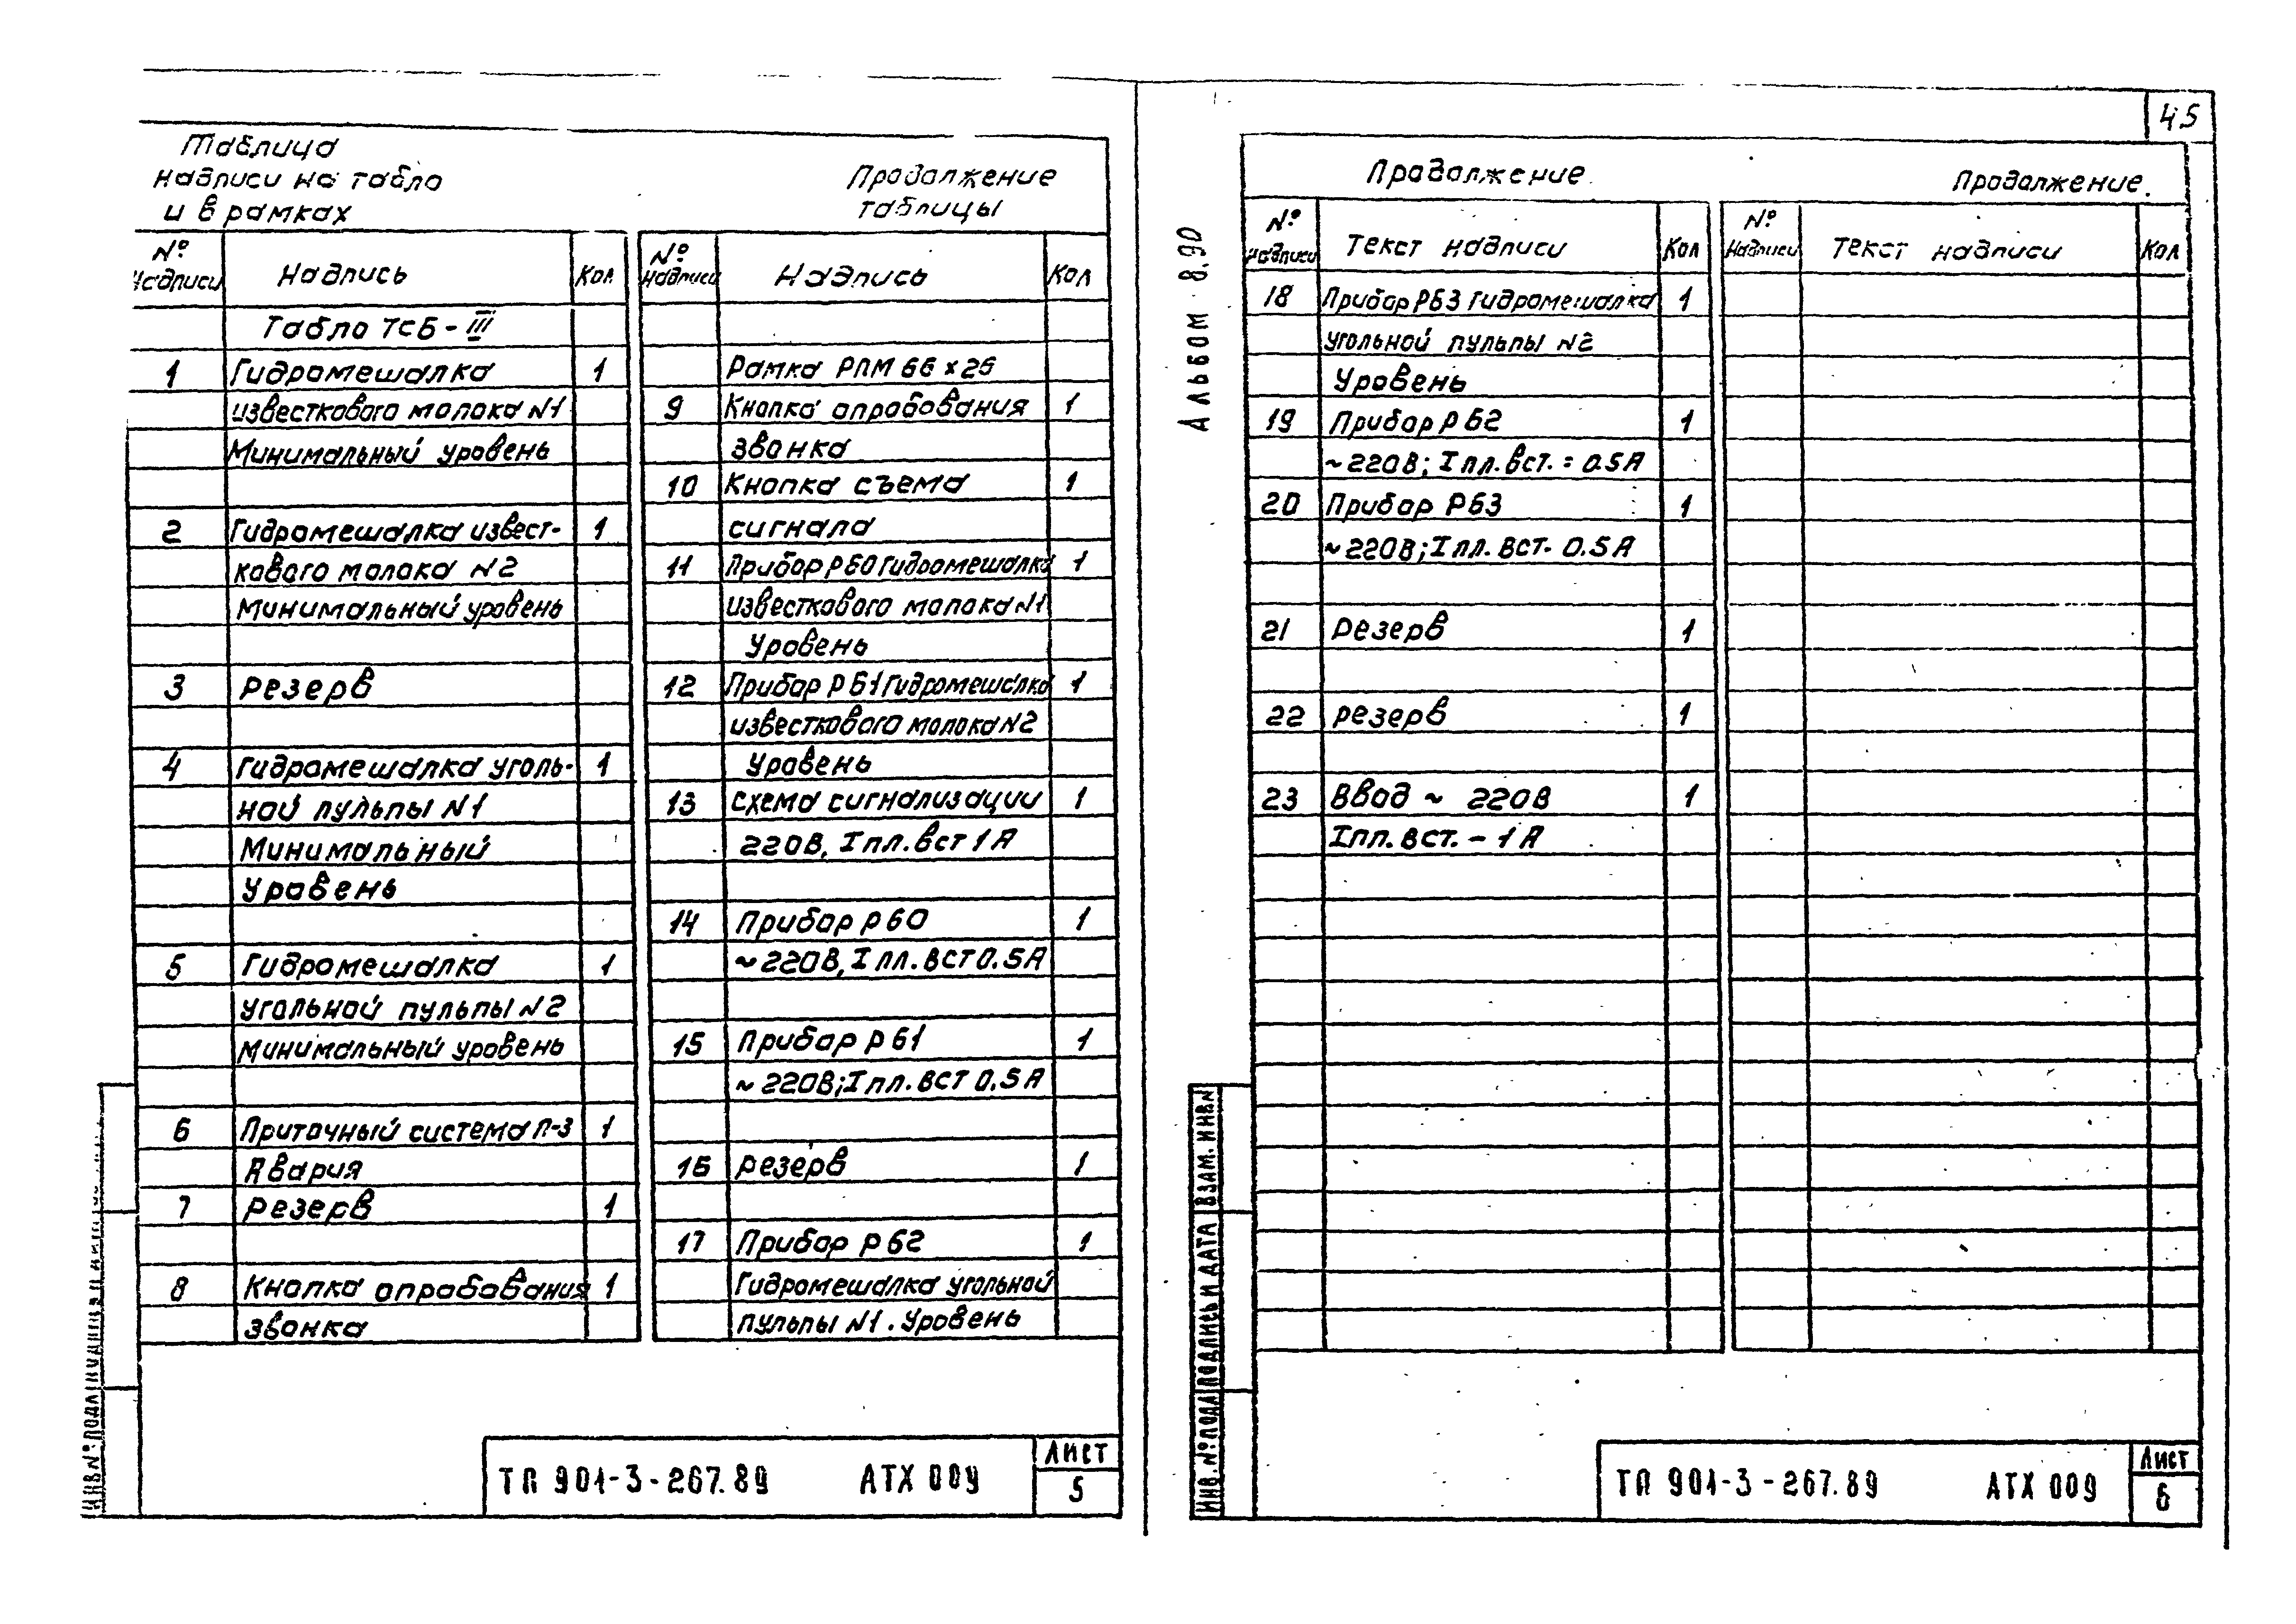 45
Таблица
надписи на табло
и в рамках
№ надписи Надпись Кол
Табло ТСБ-III
1 Гидромешалка 1
известкового молока N1
Минимальный уровень
2 Гидромешалка извест- 1
кового молока N2
Минимальный уровень
3 Резерв
4 Гидромешалка уголь- 1
ной пульпы N1
Минимальный
Уровень
5 Гидромешалка 1
угольной пульпы N2
минимальный уровень
6 Приточный система П-3 1
Авария
7 Резерв 1
8 Кнопка опробования 1
звонка
Продолжение
таблицы
№ надписи Надпись Кол
Рамка РПМ 66×26
9 Кнопка опробования 1
звонка
10 Кнопка съема 1
сигнала
11 Прибор Р60 Гидромешалка 1
известкового молока N1
Уровень
12 Прибор Р61 Гидромешалка 1
известкового молока N2
Уровень
13 Схема сигнализации 1
220В, Iпл.вст 1А
14 Прибор Р60 1
~220В, Iпл.вст 0.5А
15 Прибор Р61 1
~220В; Iпл.вст 0.5А
16 Резерв 1
17 Прибор Р62 1
Гидромешалка угольной
пульпы N1. Уровень
ТП 901-3-267.89 АТХ 009
Лист
5
Альбом 8.90
Продолжение
№ надписи Текст надписи Кол
18 Прибор Р63 Гидромешалка 1
угольной пульпы N2
Уровень
19 Прибор Р62 1
~220В; Iпл.вст. = 0.5А
20 Прибор Р63 1
~220В; Iпл.вст- 0.5А
21 Резерв 1
22 резерв 1
23 Ввод ~ 220В 1
Iпл.вст. - 1А
Продолжение.
№ надписи Текст надписи Кол
ИНВ.№ ПОДЛ ПОДПИСЬ И ДАТА ВЗАМ. ИНВ№
ТП 901-3-267.89 АТХ 009
Лист
6